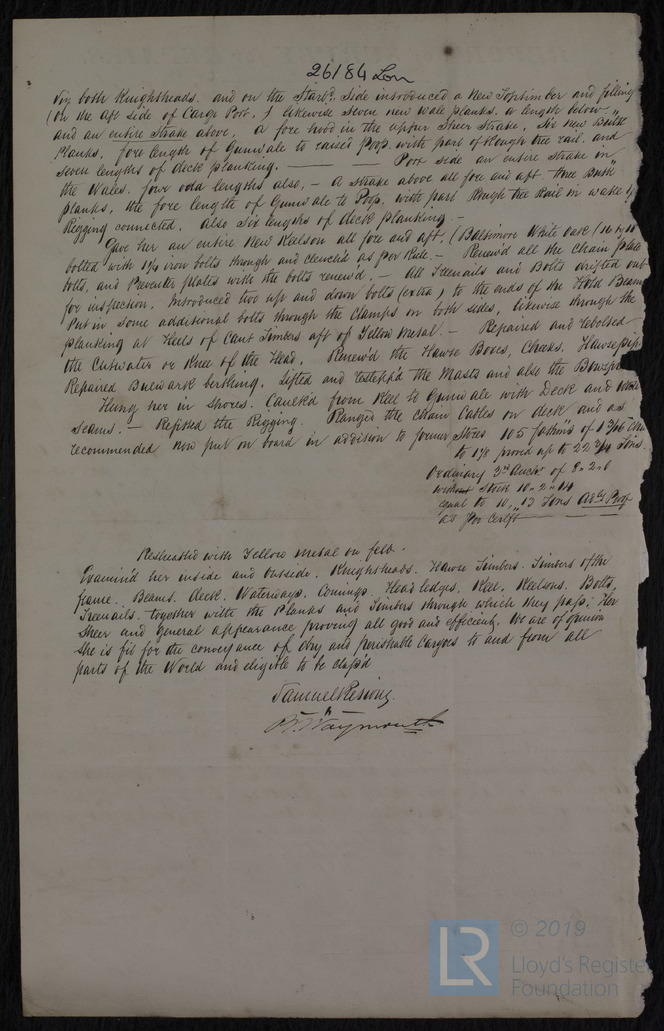 26184 Lon
Viz both Knightheads. and on the Starbd. Side introduced a New Toptimber and filling
(on the aft side of Cargo Port.) likewise seven new wale planks, a length below,
and an entire strake above, a fore hood in the upper Sheer Strake. Six new
Planks, fore length of Gunwale to raised Poop with part of Rough tree rail. and
seven lengths of deck planking. — Port side an entire strake in
the Wales. four odd lengths also, – A strake above all fore and aft three
planks, the fore length of Gunwale to Poop, with part Rough tree Rail in wake of
Rigging connected. Also Six lengths of deck planking. –
Gave her an entire New Keelson all fore and aft, (Baltimore White Oak (16 by
bolted with 1⅛ iron bolts through and clenched as per Rule. – Renew'd all the Chain plate
bolts, and Preventer plates with the bolts renew'd. – All Treenails and Bolts drifted out
for inspection. Introduced two up and down bolts (extra) to the ends of the Hold Beams
Put in some additional bolts through the Clamps on both sides, likewise through the
planking at Heels of Cant Timbers aft of Yellow Metal. – Repaired and rebolted
the Cutwater or Knee of the Head. Renew'd the Hawse Boxes, Cheeks, Hawse pipes
Repaired Bulwark berthing. Lifted and restepp'd the Masts and also the
Hung her in shores. Caulk'd from Keel to Gunwale with Deck and
seams. – Refitted the Rigging. Ranged the Chain Cables on deck and as
recommended now put on board in addition to former Stores 105 fathms of 1 3/16
to 1⅛ proved up to 22 3/4 Tons.
Ordinary 3rd Anchr of 8..2..0
without Stock 10..2..14
equal to 10..13 Tons Ad'y Proof
as per Certft
Resheath'd with Yellow Metal on felt.
Examin'd her inside and outside. Knightheads. Hawse Timbers. Timbers of the
frame. Beams. deck. Waterways. Comings. Head ledges. Keel. Keelsons. Bolts,
Treenails. together with the Planks and Timbers through which they pass; Her
Sheer and general appearance proving all good and efficient, We are of opinion
She is fit for the conveyance of dry and perishable Cargoes to and from all
parts of the World and eligible to be class'd
Samuel
Waymouth
© 2019
Lloyd's Register
Foundation
LR